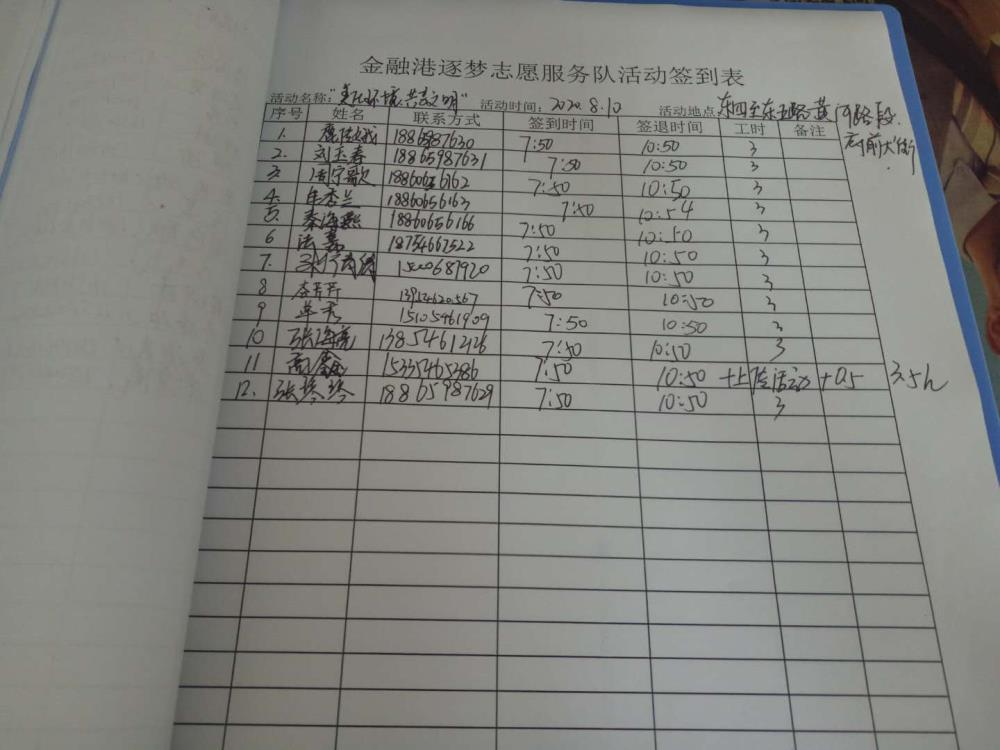 金融港逐梦志愿服务队活动签到表
活动名称："美化环境共享文明" 活动时间：2020.8.10 活动地点 东四至东五路黄河路段.
府前大街.
序号 姓名 联系方式 签到时间 签退时间 工时 备注
1. 7:50 10:50 3
2. 刘玉春 18865987631 7:50 10:50 3
3 周宁歌 18860656162 7:50 10:50 3
4. 牟杏兰 18860656163 7:50 10:54 3
5. 秦海熙 18860656166 7:50 10:50 3
6 18754667522 7:50 10:50 3
7. 7:50 10:50 3
8 7:50 10:50 3
9 单秀 15105461909 7:50 10:50 3
10 张海亮 13854612126 7:50 10:50 3
11 高鑫 15335465386 7:50 10:50 +上传活动 +0.5 3.5h
12. 张琴琴 18865987629 7:50 10:50 3